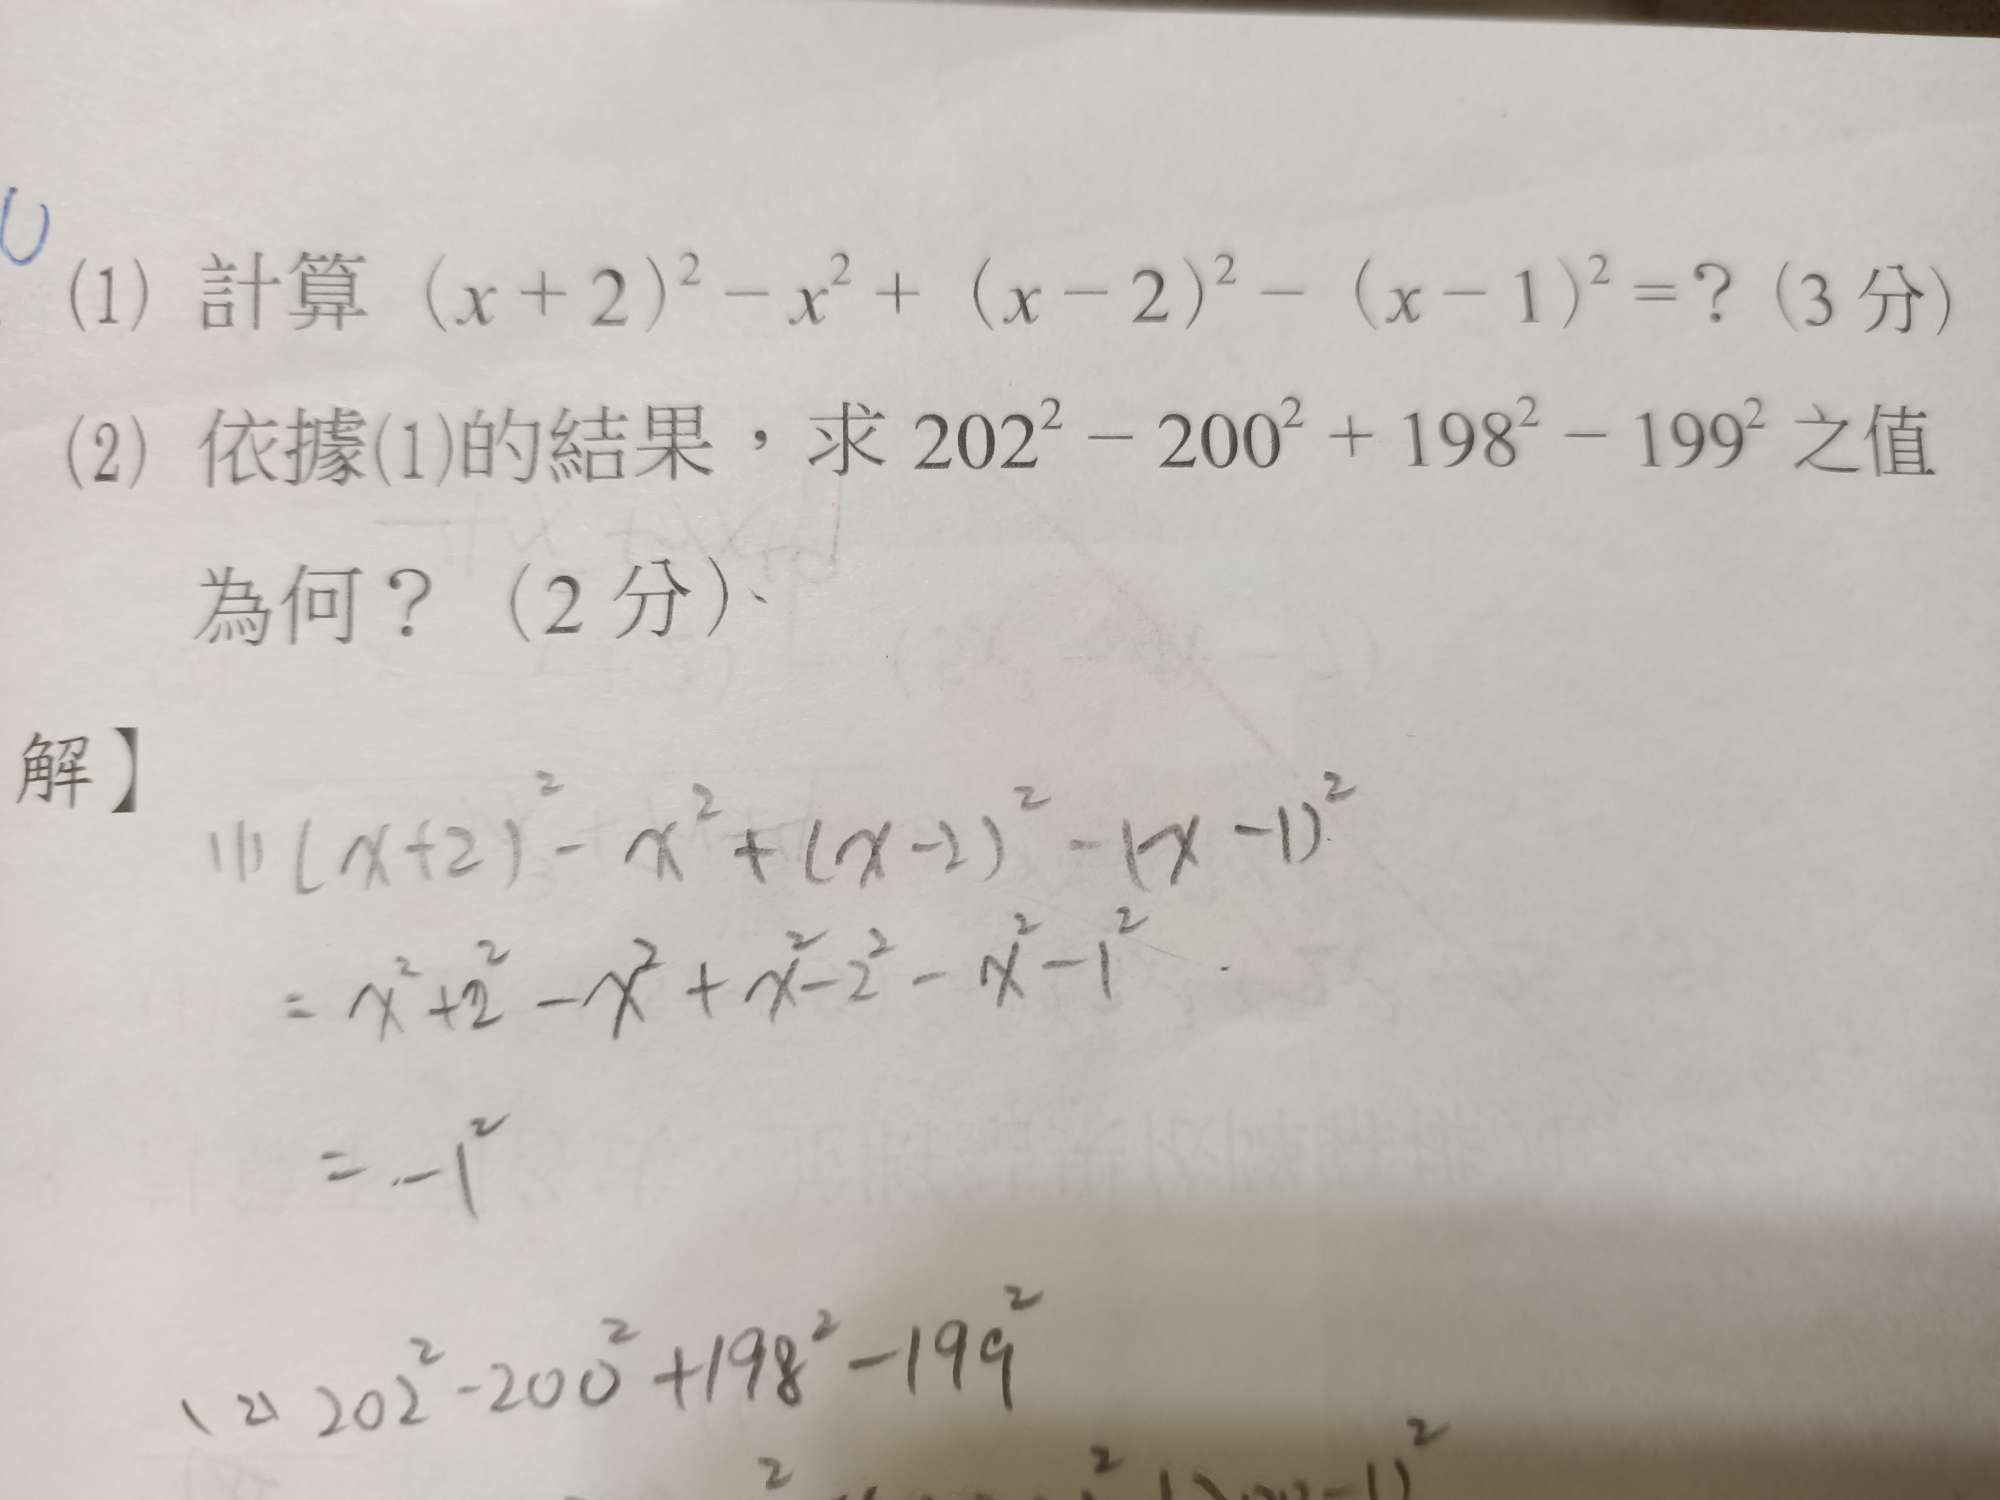 (1) 計算 (x+2)²-x²+(x-2)²-(x-1)²=?(3分)
(2) 依據(1)的結果，求 202²-200²+198²-199² 之值
為何？(2分)、
解】
(1) (x+2)²-x²+(x-2)²-(x-1)²
=x²+2²-x²+x²-2²-x²-1²
=-1²
(2) 202²-200²+198²-199²